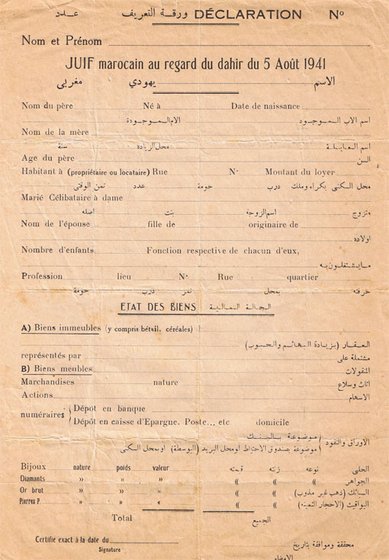 عدد ورقة التعريف DÉCLARATION N°
Nom et Prénom
JUIF marocain au regard du dahir du 5 Août 1941
الاسم يهودي مغربي
Nom du père Né à Date de naissance اسم الاب المـوجود
Nom de la mère الام الموجودة
محل الزيادة سنة
Age du père السن
Habitant à (propriétaire ou locataire) Rue N° Montant du loyer
محل السكنى بكراء وملك درب حومة عدد ثمن الوقتى
Marié Célibataire à dame
متزوج اسم الزوجة بنت اصله
Nom de l'épouse fille de originaire de
اولاده
Nombre d'enfants Fonction respective de chacun d'eux,
ما يشتغلون به
Profession lieu N° Rue quartier
حرفته بمحل درب حومة
ETAT DES BIENS الحالة المالية
A) Biens immeubles (y compris bétail, céréales)
العقار (بزيادة البهائم والحبوب)
représentés par مشتملة على
B) Biens meubles المنقولات
Marchandises nature اثاث وسلاع
Actions الاسهام
numéraires Dépôt en banque
Dépôt en caisse d'Epargne. Poste.., etc domicile
الاوراق والنقود موضوعة بالبنك
موضوعة بصندوق الاحتياط او محل البريد (البوسطة) او محل السكنى
Bijoux nature poids valeur الحلي نوعه زنته قيمته
Diamants » » » الجواهر
Or brut » » » السبائك (ذهب غير مذوب)
Pierres P. » » » اليواقيت (الاحجار الثمينة)
Total الجميع
Certifie exact à la date du
محققة وموافقة بتاريخ
Signature
الامضاء